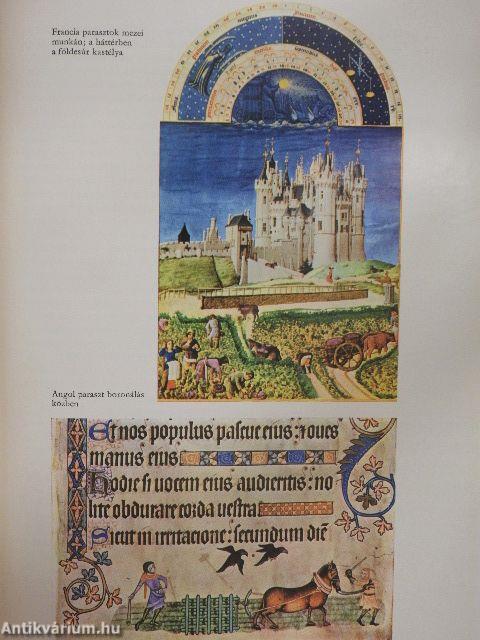 Francia parasztok mezei
munkán; a háttérben
a földesúr kastélya
Angol paraszt boronálás
közben
Et nos populus pascue eius : ⁊ oues
manus eius
Hodie si uocem eius audieritis : no
lite obdurare corda uestra
Sicut in irritacione : secundum diē
Antikvárium.hu